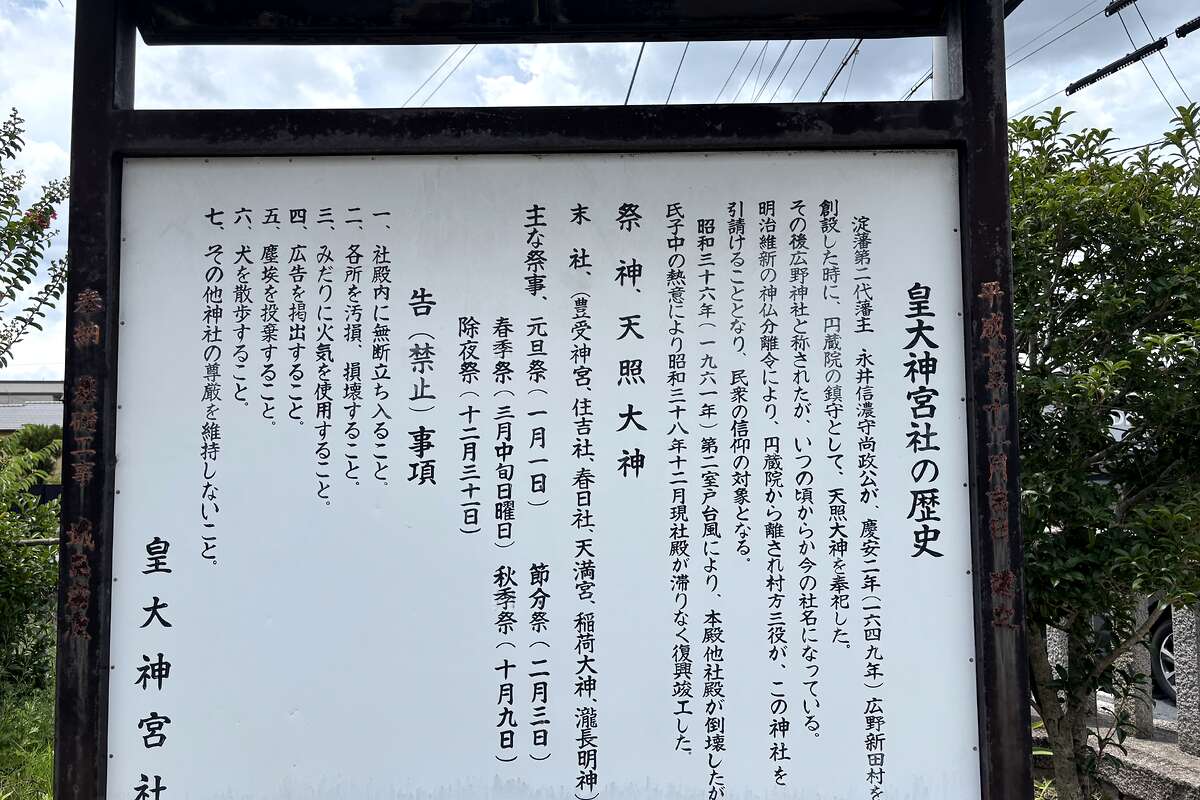 皇大神宮社の歴史
淀藩第二代藩主　永井信濃守尚政公が、慶安二年(一六四九年)広野新田村を
創設した時に、円蔵院の鎮守として、天照大神を奉祀した。
その後広野神社と称されたが、いつの頃からか今の社名になっている。
明治維新の神仏分離令により、円蔵院から離され村方三役が、この神社を
引請けることとなり、民衆の信仰の対象となる。
昭和三十六年(一九六一年)第二室戸台風により、本殿他社殿が倒壊したが
氏子中の熱意により昭和三十八年十二月現社殿が滞りなく復興竣工した。
祭　神、天照大神
末　社、(豊受神宮、住吉社、春日社、天満宮、稲荷大神、瀧長明神)
主な祭事、元旦祭(一月一日)　節分祭(二月三日)
春季祭(三月中旬日曜日)　秋季祭(十月九日)
除夜祭(十二月三十一日)
告(禁止)事項
一、社殿内に無断立ち入ること。
二、各所を汚損、損壊すること。
三、みだりに火気を使用すること。
四、広告を掲出すること。
五、塵埃を投棄すること。
六、犬を散歩すること。
七、その他神社の尊厳を維持しないこと。
皇大神宮社
奉納